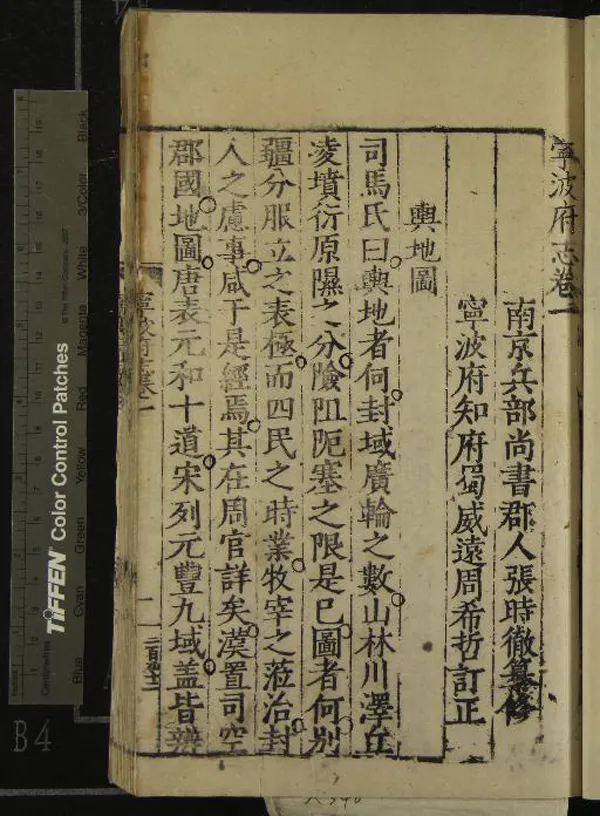 寧波府志卷一
南京兵部尚書郡人張時徹纂修
寧波府知府蜀威遠周希哲訂正
輿地圖
司馬氏曰輿地者何封域廣輪之數山林川澤丘
凌墳衍原隰之分險阻阨塞之限是已圖者何別
疆分服立之表極而四民之時業牧宰之蒞治封
人之慮事咸于是經焉其在周官詳矣漢置司空
郡國地圖唐表元和十道宋列元豐九域盖皆辨
寧波府志卷一
一
TIFFEN Color Control Patches
Centimetres
Blue Cyan Green Yellow Red Magenta White 3/Color Black
B4